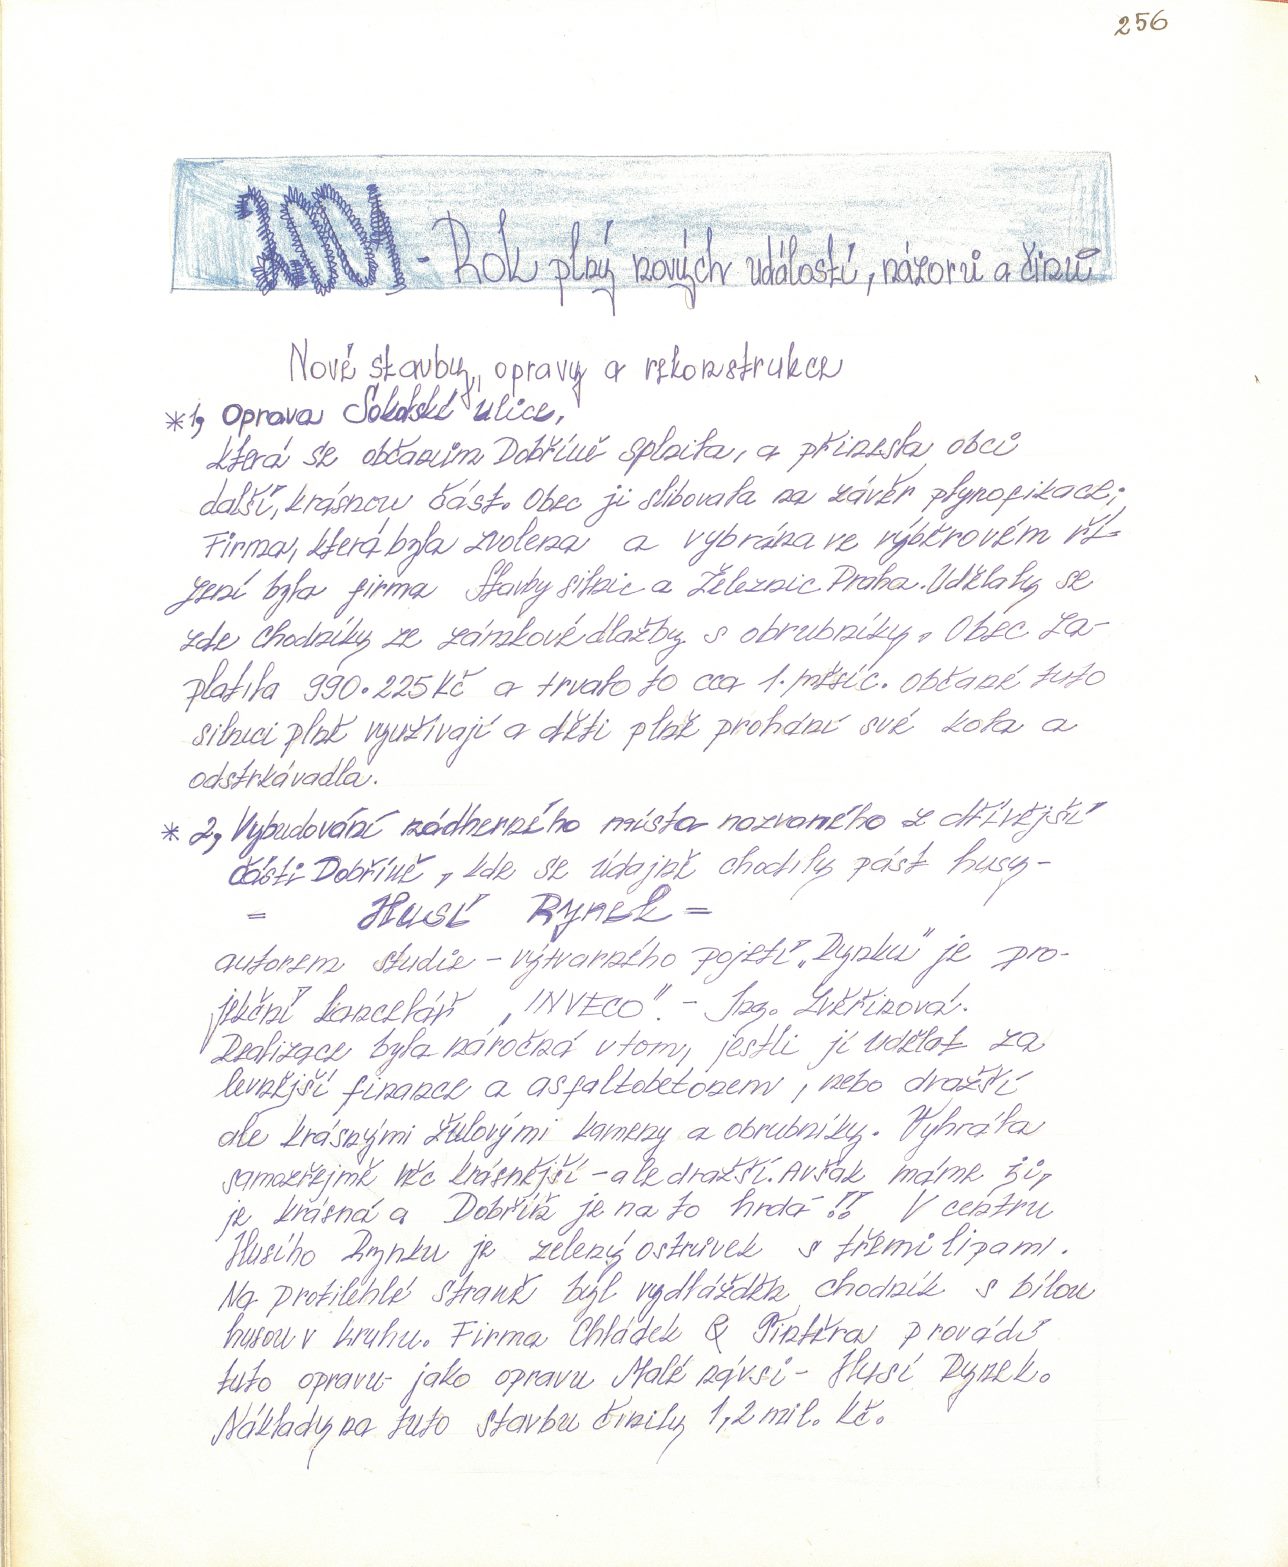 256
2001 - Rok plný nových událostí, názorů a činů
Nové stavby, opravy a rekonstrukce
* 1, Oprava Sokolské ulice,
která se občanům Dobříně splnila, a přinesla obci
další, krásnou část. Obec ji slibovala na závěr plynofikace;
Firma, která byla zvolena a vybrána ve výběrovém ří-
zení byla firma Stavby silnic a Železnic Praha. Udělaly se
zde chodníky ze zámkové dlažby s obrubníky. Obec za-
platila 990.225 Kč a trvalo to cca 1. měsíc. Občané tuto
silnici plně využívají a děti plně prohání své kola a
odstrkávadla.
* 2, Vybudování nádherného místa nazvaného z dřívější
části Dobříně, kde se údajně chodily pást husy-
= Husí Rynek =
autorem studie - výtvarného pojetí „Rynku" je pro-
jekční kancelář „INVECO". - Ing. Zvěřinová.
Realizace byla náročná v tom, jestli ji udělat za
levnější finance a asfaltobetonem, nebo dražší
ale krásnými žulovými kameny a obrubníky. Vyhrála
samozřejmě věc krásnější - ale dražší. Avšak máme ji,
je krásná a Dobříň je na to hrdá !! V centru
Husího Rynku je zelený ostrůvek s třemi lipami.
Na protilehlé straně byl vydlážděn chodník s bílou
husou v kruhu. Firma Chládek & Tintěra provádí
tuto opravu - jako opravu Malé návsi - Husí Rynek.
Náklady na tuto stavbu činily 1,2 mil. Kč.